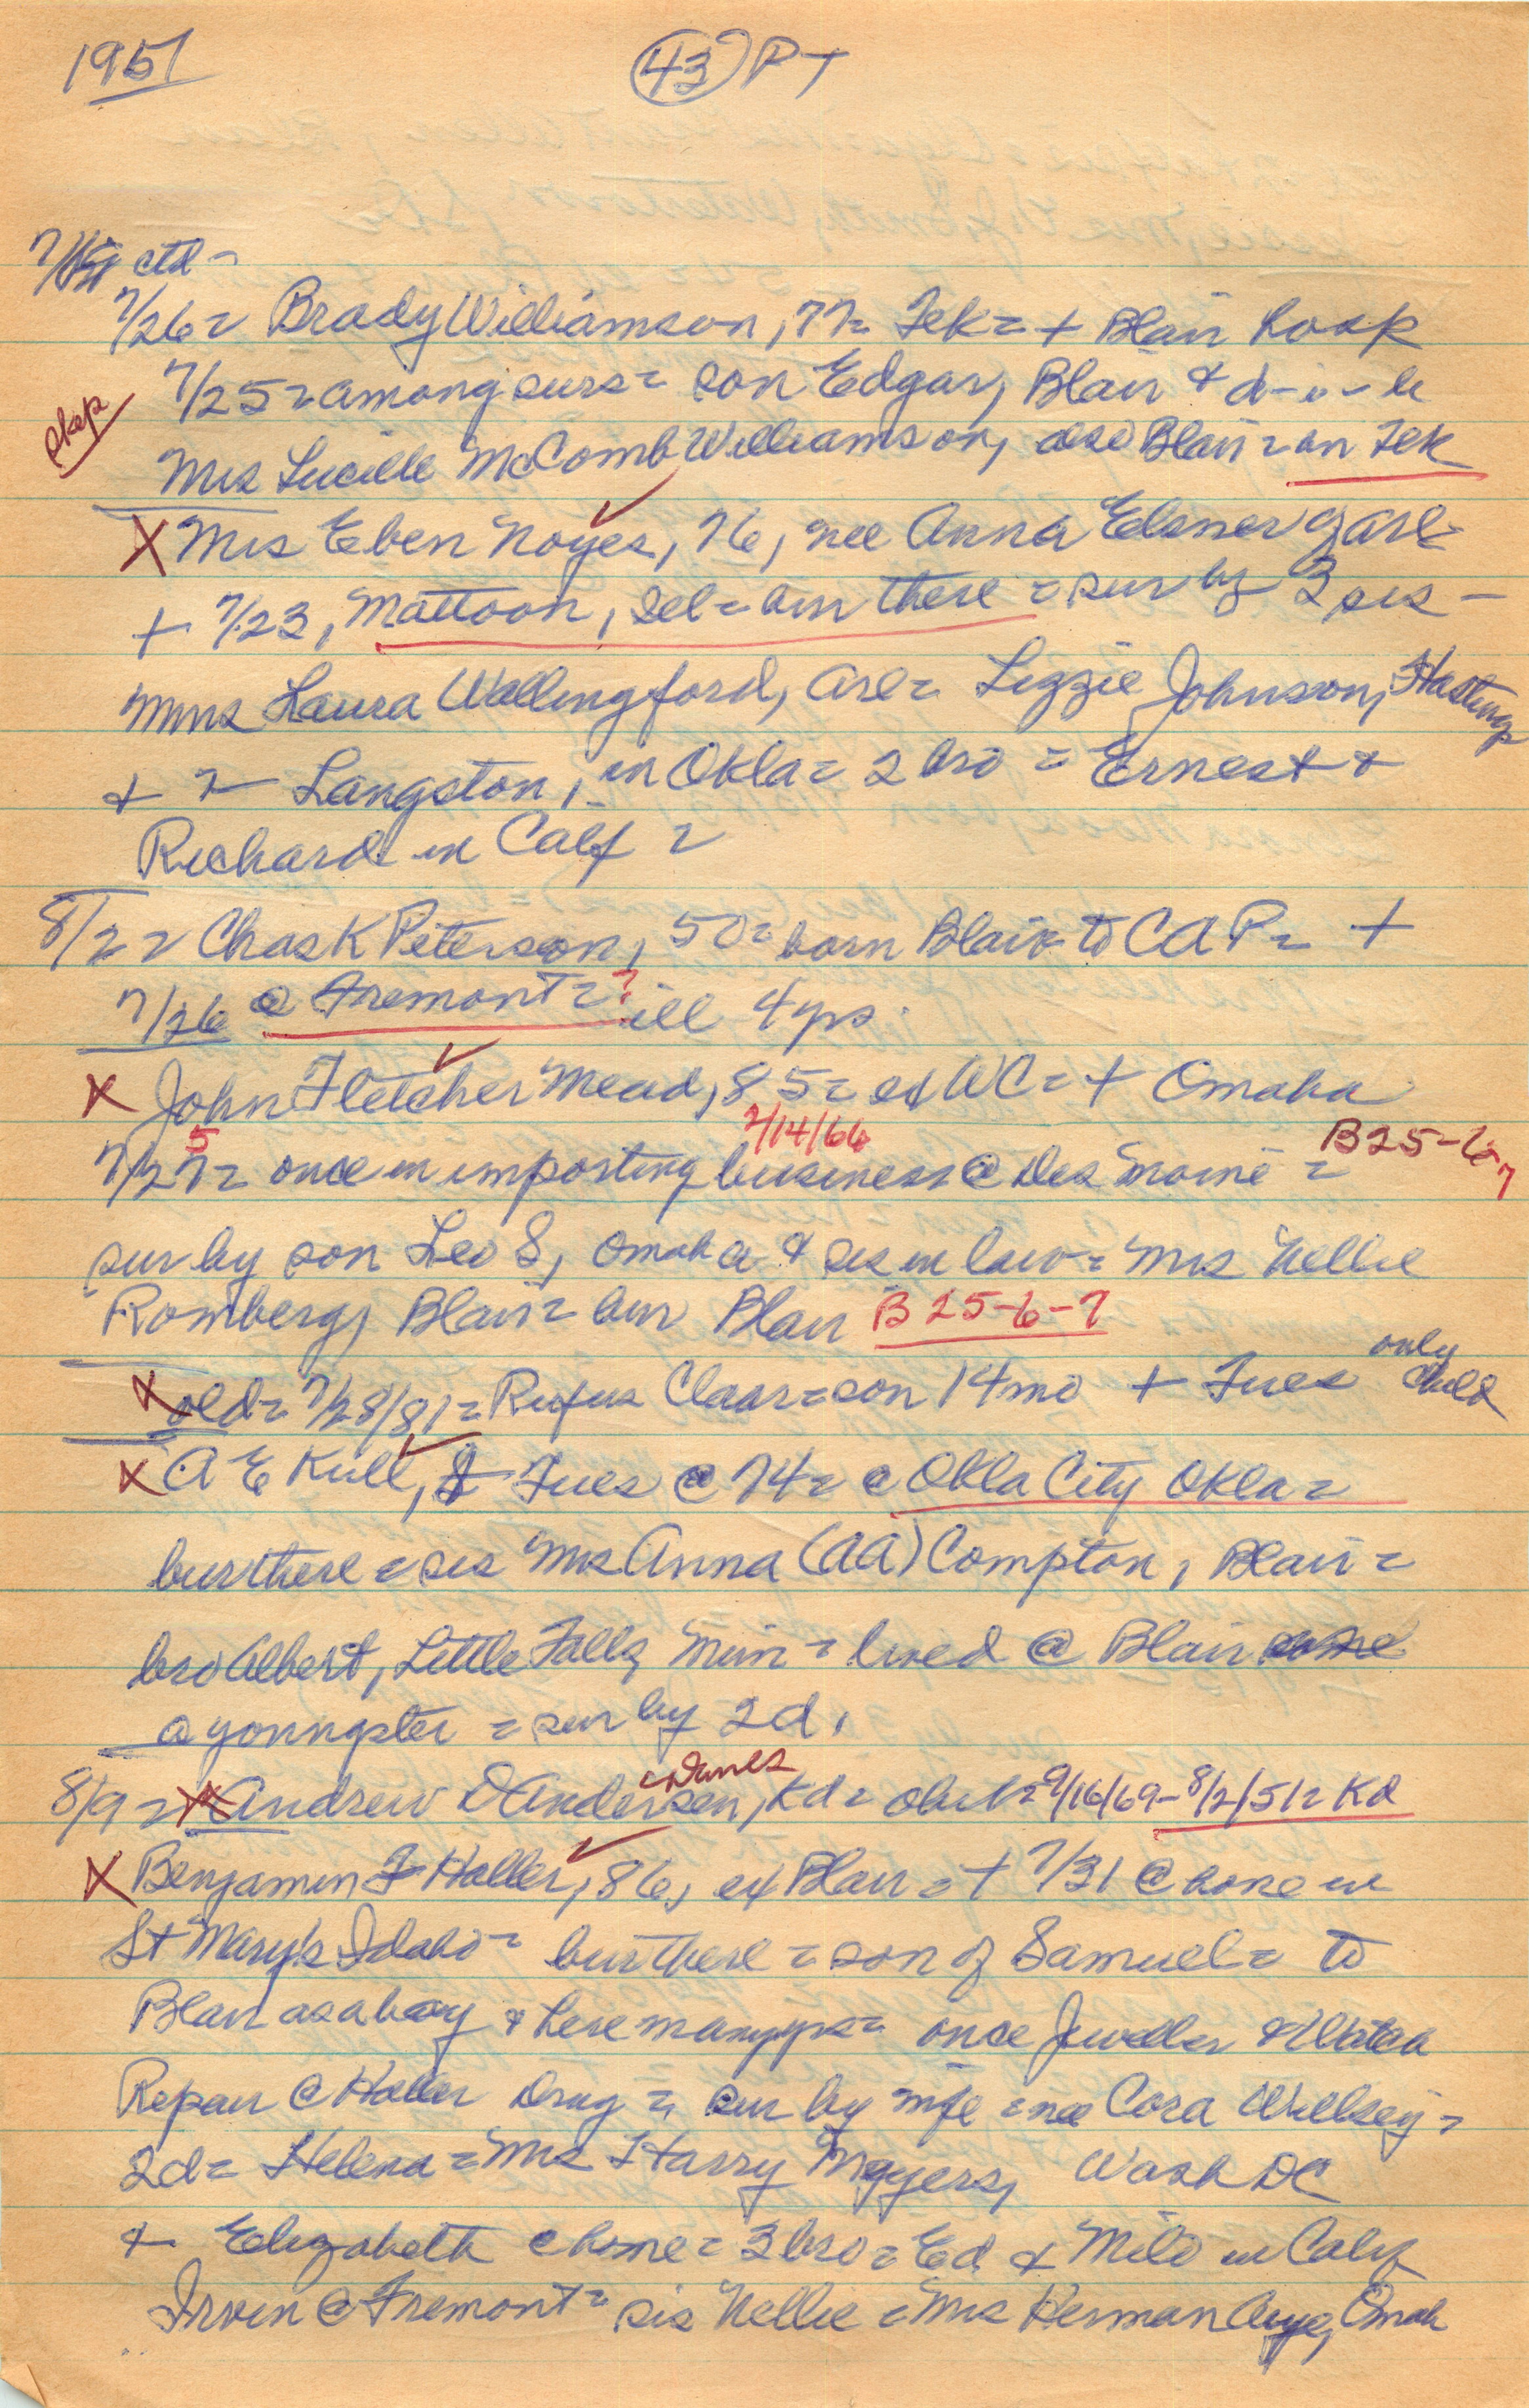 1951 (43) PT
ctd -
7/26 = Brady Williamson, 77 = Tek = + Blair hosp
7/25 = among surs = son Edgar, Blair & d-i-l
skip
Mrs Lucille McComb Williamson, also Blair = on Tek
X Mrs Eben Noyes, 76, nee Anna Elsner of Arl -
+ 7/23, Mattoon, = bur there = sur by 3 sis -
Mmes Laura Wallingford, Arl = Lizzie Johnson, Hastings
+ ? - Langston, in Okla = 2 bro = Ernest &
Richard in Calf =
8/2 = Chas K Peterson, 50 = born Blair to C A P = +
7/26 @ Fremont = ? ill 4 yrs.
X John Fletcher Mead, 85 = ex WC = + Omaha
5 2/14/66 B 25-6-7
7/27 = once in importing business @ Des Moine =
sur by son Leo S, Omaha & sis in law = Mrs Nellie
Romberg, Blair = bur Blair B 25-6-7
X old = 7/28/81 = Rufus Claar = son 14 mo + Tues only child
X A E Kull, + Tues @ 74 = @ Okla City Okla =
bur there = sis Mrs Anna (AA) Compton, Blair =
bro Albert, Little Falls, Minn = lived @ Blair
a youngster = sur by 2d.
= Danes
8/9 = X Andrew D Andersen, Kd = obit = 9/16/69 - 8/2/51 = Kd
X Benjamin F Haller, 86, ex Blair = + 7/31 @ home in
St Mary's Idaho = bur there = son of Samuel = to
Blair as a boy & here many yrs = once Jeweller & Watch
Repair @ Haller Drug = sur by wife = nee Cora Willsey =
2d = Helena = Mrs Harry Meyers, Wash DC
+ Elizabeth @ home = 3 bro = Ed & Milo in Calif
Irvin @ Fremont = sis Nellie = Mrs Herman Auye, Omah